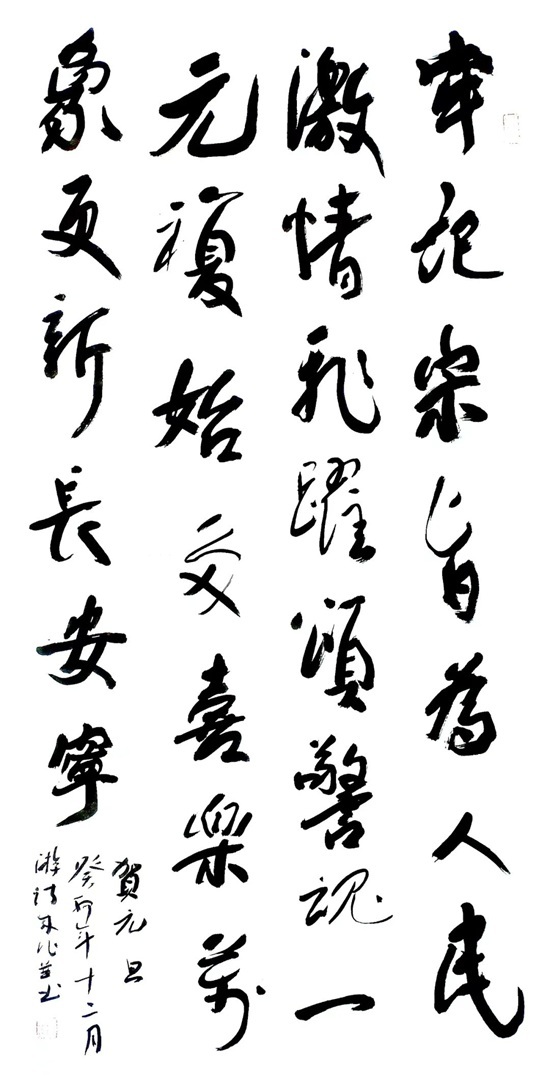 牢记宗旨為人民
激情飛躍頌警魂一
元複始交喜樂萬
象更新長安寧
賀元旦
癸卯年十二月